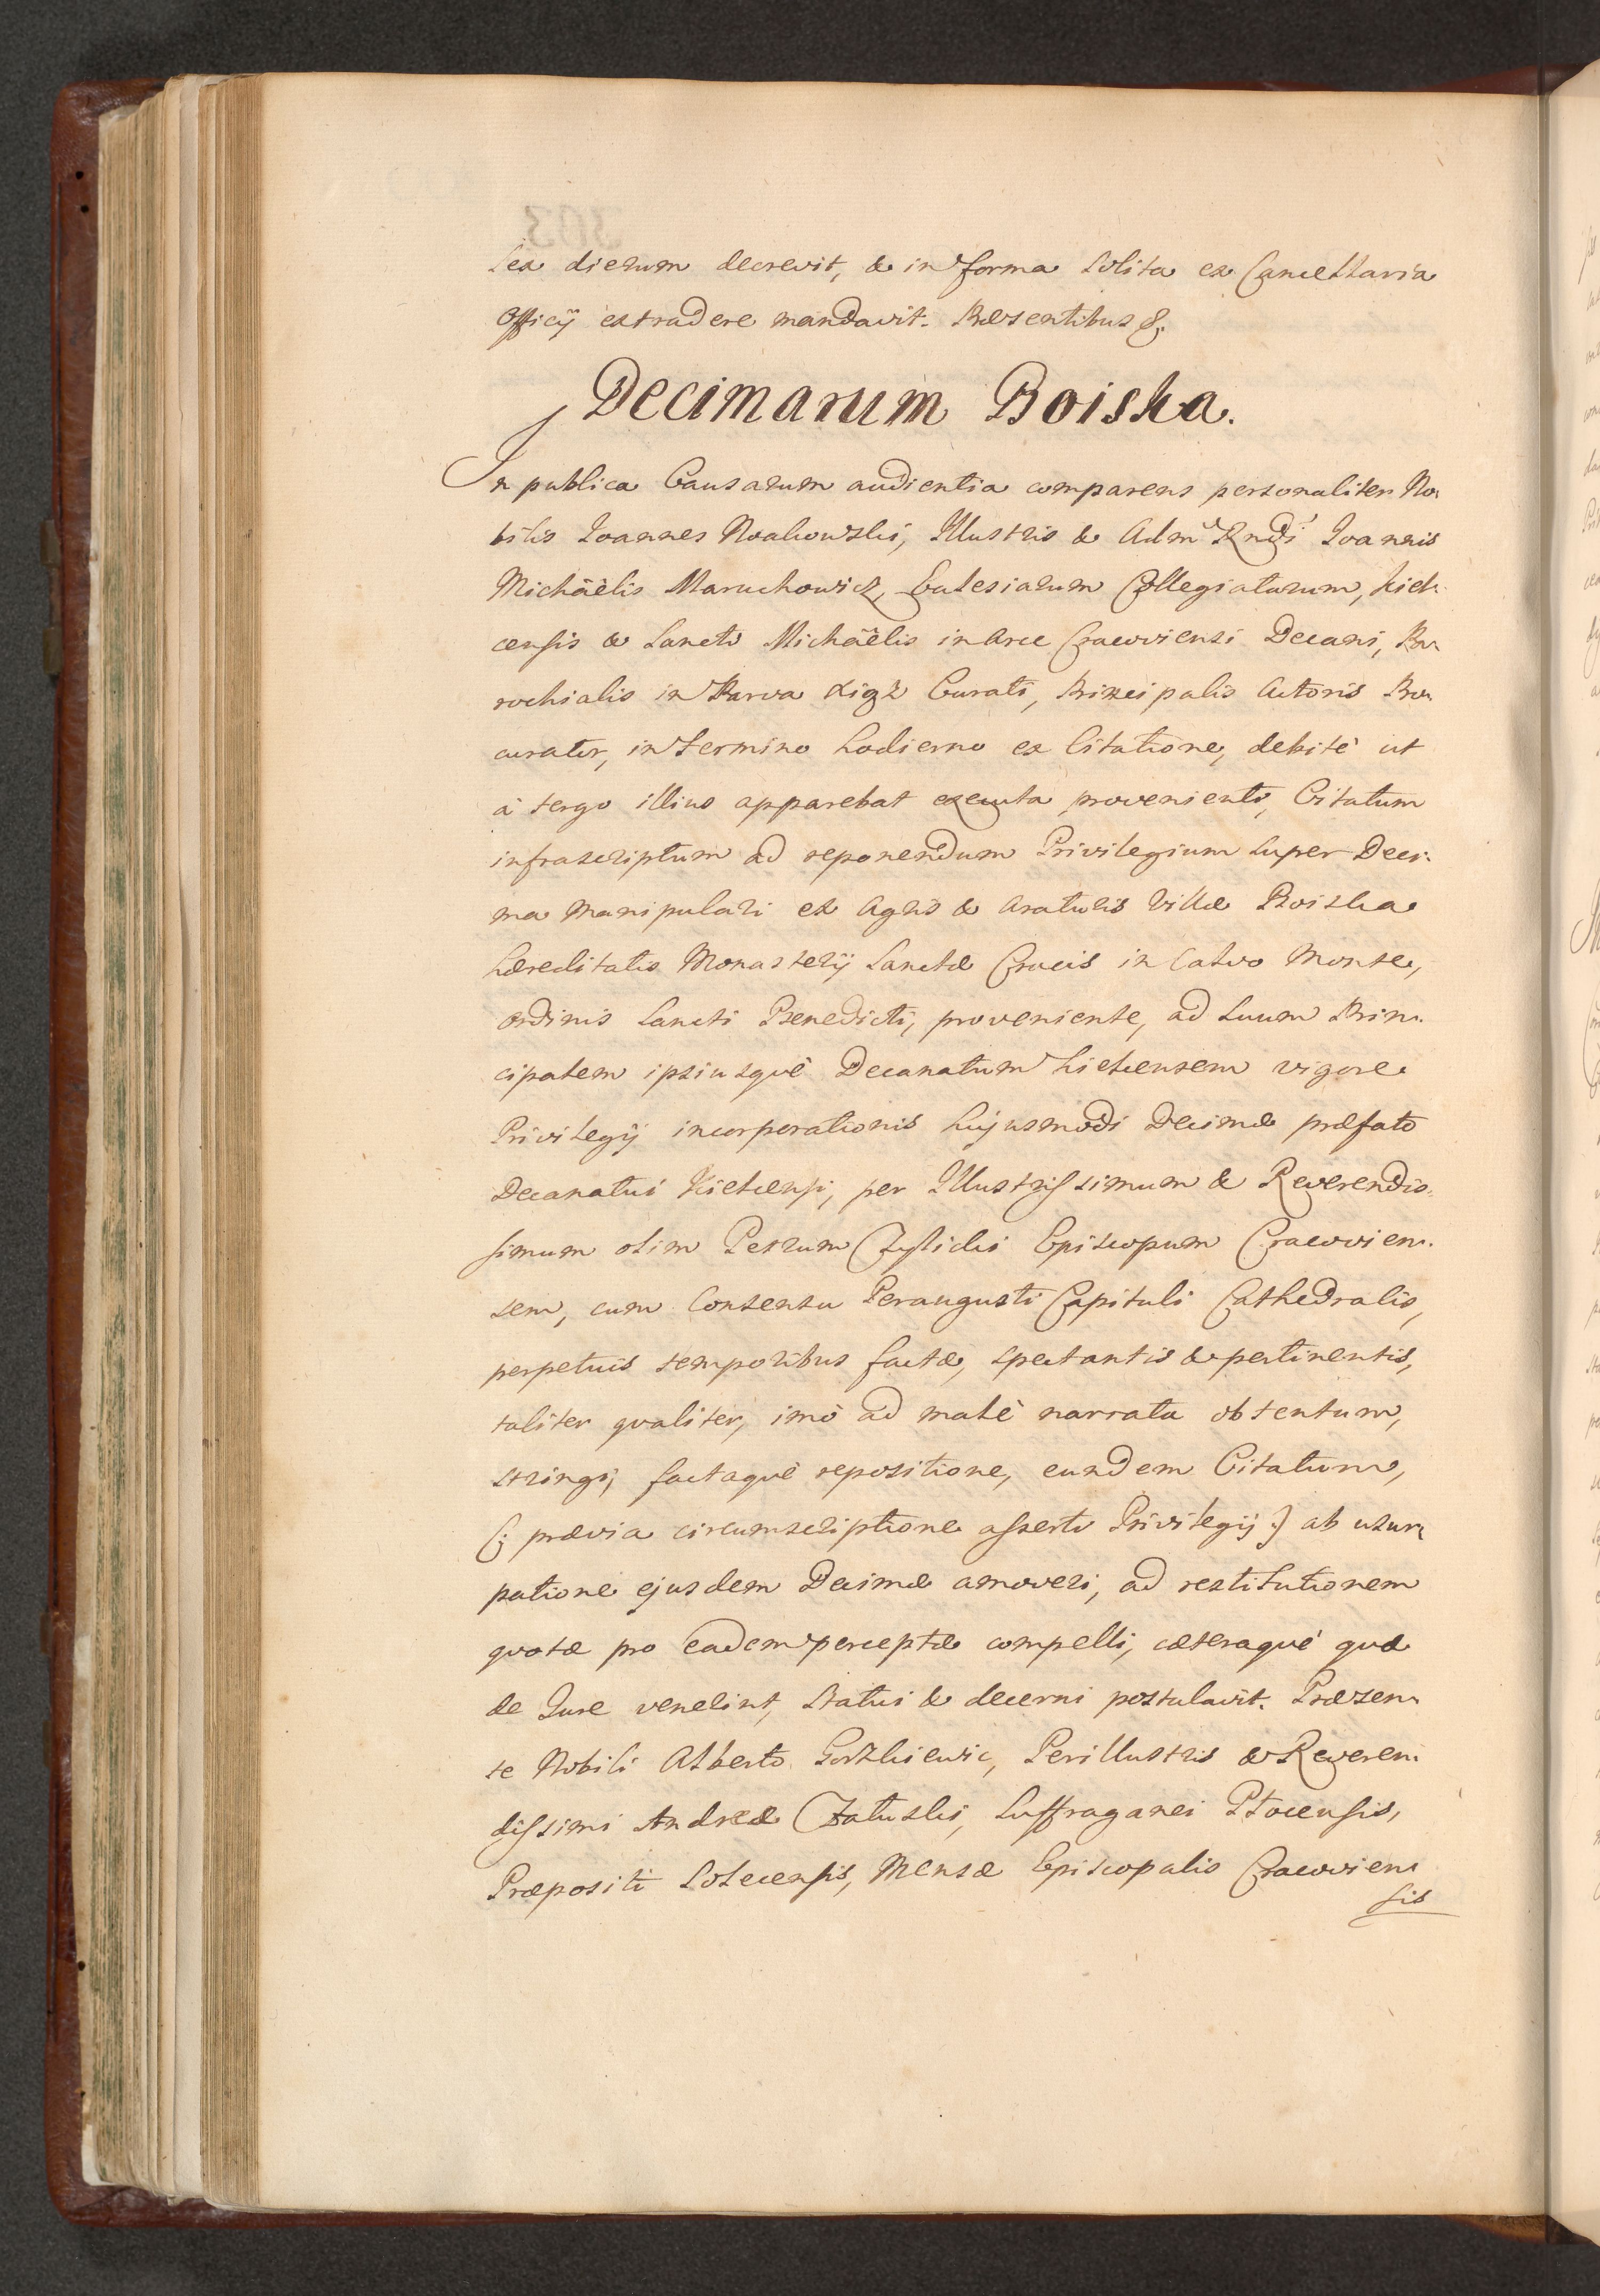 sex dierum decrevit, & in forma solita ex Cancellaria
Officij extradere mandavit. Præsentibus &.
Decimarum Boiska.
In publica Causarum audientia comparens personaliter No-
bilis Joannes Noakowski, Illustris & Adm Rndi Joannis
Michäelis Maruchowicz, Ecclesiarum Collegiatarum, Kiel-
censis & Sancti Michäelis in Arce Cracoviensi Decani, Pa-
rochialis in Parva Kigz Curati, Principalis Actoris Pro-
curator, in termino hodierno ex Citatione, debitè ut
à tergo illius apparebat executa, provenienti, Citatum
infrascriptum ad reponendum Privilegium super Deci-
ma Manipulari ex Agris & araturis Villæ Boiska
hæreditatis Monasterij Sanctæ Crucis in Calvo Monte,
ordinis Sancti Benedicti, proveniente, ad suum Prin-
cipalem ipsiusquè Decanatum Kielcensem vigore
Privilegij incorporationis hujusmodi Decimæ præfato
Decanatui Kielcensi, per Illustrissimum & Reverendis-
simum olim Petrum Episcopum Cracovien-
sem, cum Consensu Peraugusti Capituli Cathedralis,
perpetuis temporibus factæ, spectantis & pertinentis,
taliter qvaliter, imò ad malè narrata obtentum,
stringi, factaquè repositione, eundem Citatum,
(: prævia circumscriptione asserti Privilegij :) ab usur-
patione ejusdem Decimæ amoveri, ad restitutionem
qvotæ pro eadem perceptæ compelli, cæteraquè qvæ
de Jure venerint, statui & decerni postulavit. Præsen-
te Nobili Alberto Gorzkiewic, Perillustris & Reveren-
dissimi Andreæ Załuski, Suffraganei Płocensis,
Præpositi Solecensis, Mensæ Episcopalis Cracovien-
sis